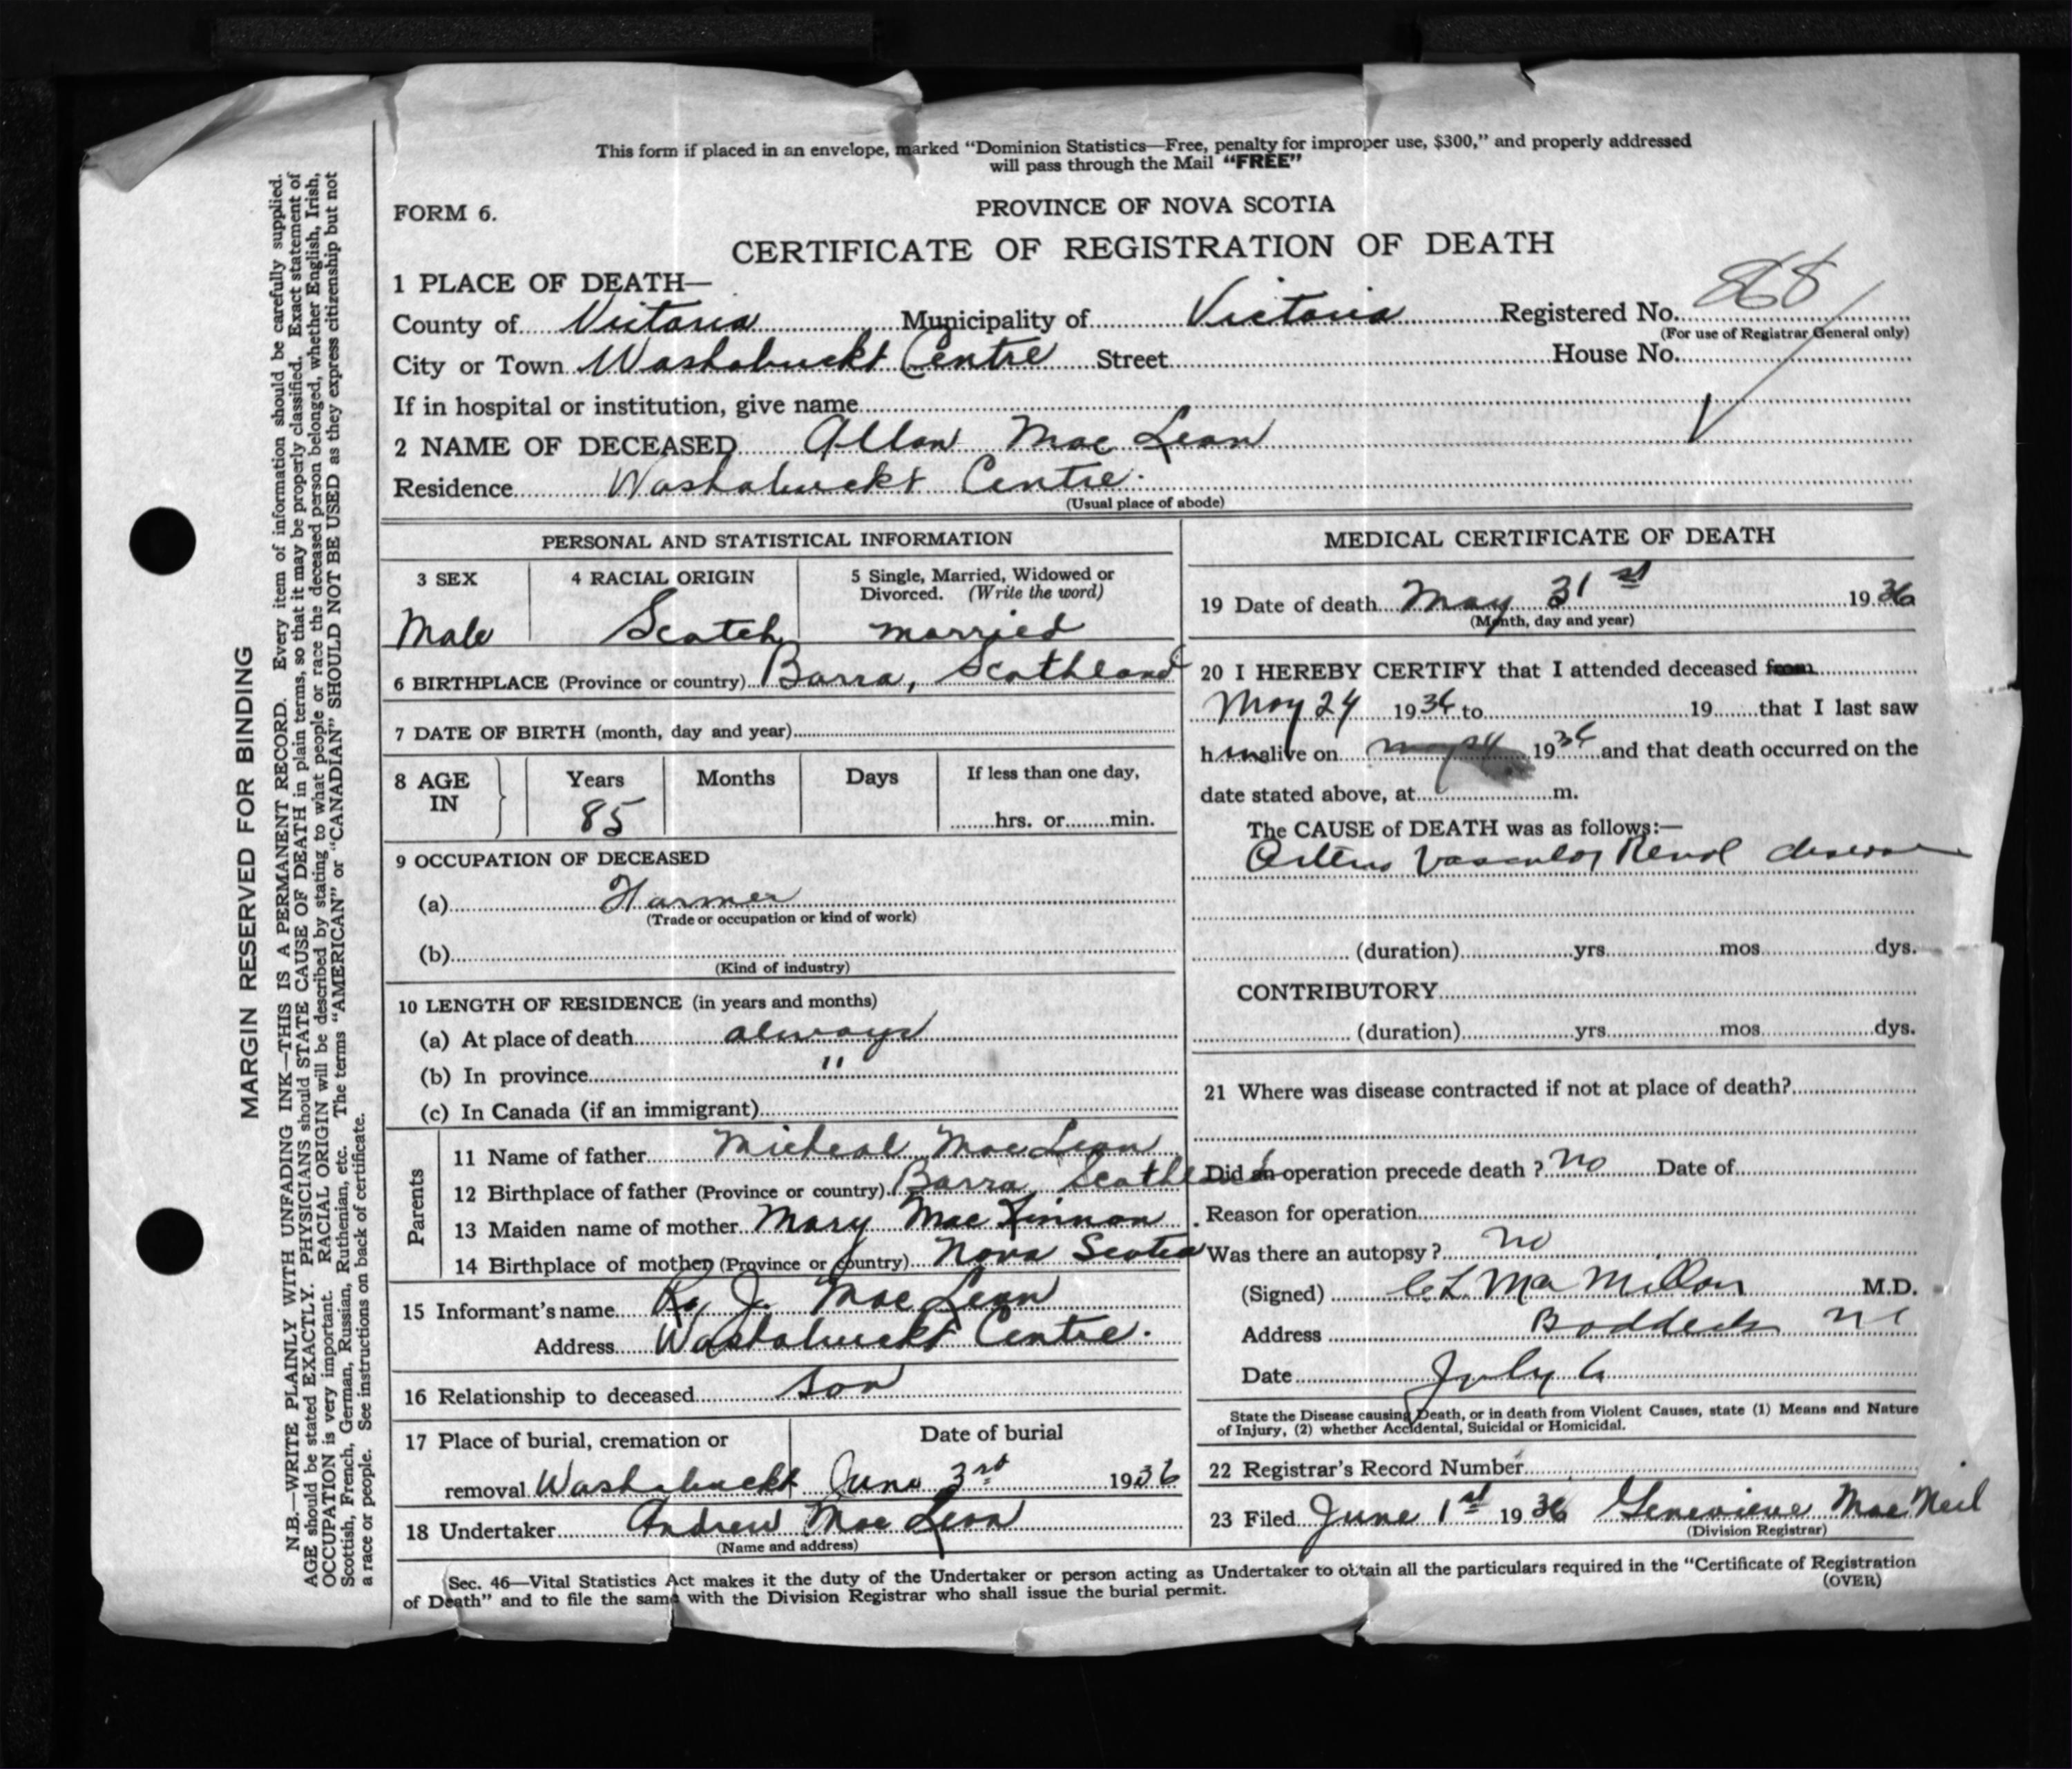 This form if placed in an envelope, marked “Dominion Statistics—Free, penalty for improper use, $300,” and properly addressed
will pass through the Mail “FREE”
FORM 6.
PROVINCE OF NOVA SCOTIA
CERTIFICATE OF REGISTRATION OF DEATH
1 PLACE OF DEATH—
County of Victoria Municipality of Victoria Registered No. 868
(For use of Registrar General only)
City or Town Washabuckt Centre Street House No.
If in hospital or institution, give name
2 NAME OF DECEASED Allan Mac Lean
Residence Washabuckt Centre.
(Usual place of abode)
PERSONAL AND STATISTICAL INFORMATION
3 SEX 4 RACIAL ORIGIN 5 Single, Married, Widowed or
Divorced. (Write the word)
Male Scotch married
6 BIRTHPLACE (Province or country) Barra, Scothland
7 DATE OF BIRTH (month, day and year)
8 AGE IN Years Months Days If less than one day,
85 hrs. or min.
9 OCCUPATION OF DECEASED
(a) Farmer
(Trade or occupation or kind of work)
(b)
(Kind of industry)
10 LENGTH OF RESIDENCE (in years and months)
(a) At place of death always
(b) In province "
(c) In Canada (if an immigrant)
Parents
11 Name of father Micheal MacLean
12 Birthplace of father (Province or country) Barra Scothland
13 Maiden name of mother Mary MacKinnon
14 Birthplace of mother (Province or country) Nova Scotia
15 Informant's name J. MacLean
Address Washabuckt Centre.
16 Relationship to deceased son
17 Place of burial, cremation or Date of burial
removal Washabuckt June 3rd 1936
18 Undertaker Andrew MacLean
(Name and address)
MEDICAL CERTIFICATE OF DEATH
19 Date of death May 31st 1936
(Month, day and year)
20 I HEREBY CERTIFY that I attended deceased from
May 24 1936 to 19 that I last saw
him alive on May 24 1936 and that death occurred on the
date stated above, at m.
The CAUSE of DEATH was as follows:—
Arterio Vascular Renal disease
(duration) yrs. mos. dys.
CONTRIBUTORY
(duration) yrs. mos. dys.
21 Where was disease contracted if not at place of death?
Did an operation precede death? no Date of
Reason for operation
Was there an autopsy? no
(Signed) C. L. MacMillan M.D.
Address Baddeck N
Date July 6
State the Disease causing Death, or in death from Violent Causes, state (1) Means and Nature
of Injury, (2) whether Accidental, Suicidal or Homicidal.
22 Registrar's Record Number
23 Filed June 1st 1936 Genevieve MacNeil
(Division Registrar)
Sec. 46—Vital Statistics Act makes it the duty of the Undertaker or person acting as Undertaker to obtain all the particulars required in the “Certificate of Registration
of Death” and to file the same with the Division Registrar who shall issue the burial permit.
(OVER)
MARGIN RESERVED FOR BINDING
N.B.—WRITE PLAINLY WITH UNFADING INK—THIS IS A PERMANENT RECORD. Every item of information should be carefully supplied.
AGE should be stated EXACTLY. PHYSICIANS should STATE CAUSE OF DEATH in plain terms, so that it may be properly classified. Exact statement of
OCCUPATION is very important. RACIAL ORIGIN will be described by stating to what people or race the deceased person belonged, whether English, Irish,
Scottish, French, German, Russian, Ruthenian, etc. The terms “AMERICAN” or “CANADIAN” SHOULD NOT BE USED as they express citizenship but not
a race or people. See instructions on back of certificate.